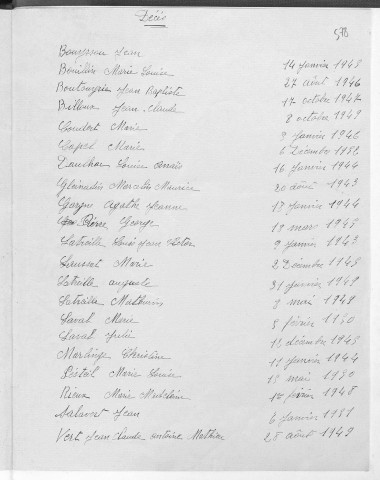 Décès
518
Bouyssou Jean 14 janvier 1948
Bénitière Marie Louise 27 août 1946
Boutonyrie Jean Baptiste 17 octobre 1942
Billoux Jean Claude 8 octobre 1949
Coulbet Marie janvier 1946
Marie 6 Décembre 1952
Louise Anaïs 16 janvier 1944
Marcelin Maurice 20 août 1943
Gorgne Agathe Jeanne 17 janvier 1944
Pierre George 19 mars 1945
Latreille Louis Jean Victor 9 janvier 1943
Marie 2 Décembre 1945
Latreille auguste 31 janvier 1949
Latreille Mathurin 8 mai 1948
Laval Marie 8 février 1950
Laval Julie 12 décembre 1945
Martinge Christine 11 janvier 1944
Marie Louise 15 mars 1950
Rieux Marie Madeleine 12 février 1948
Salavert Jean 6 janvier 1951
Vert Jean Claude antoine Mathieu 28 août 1949